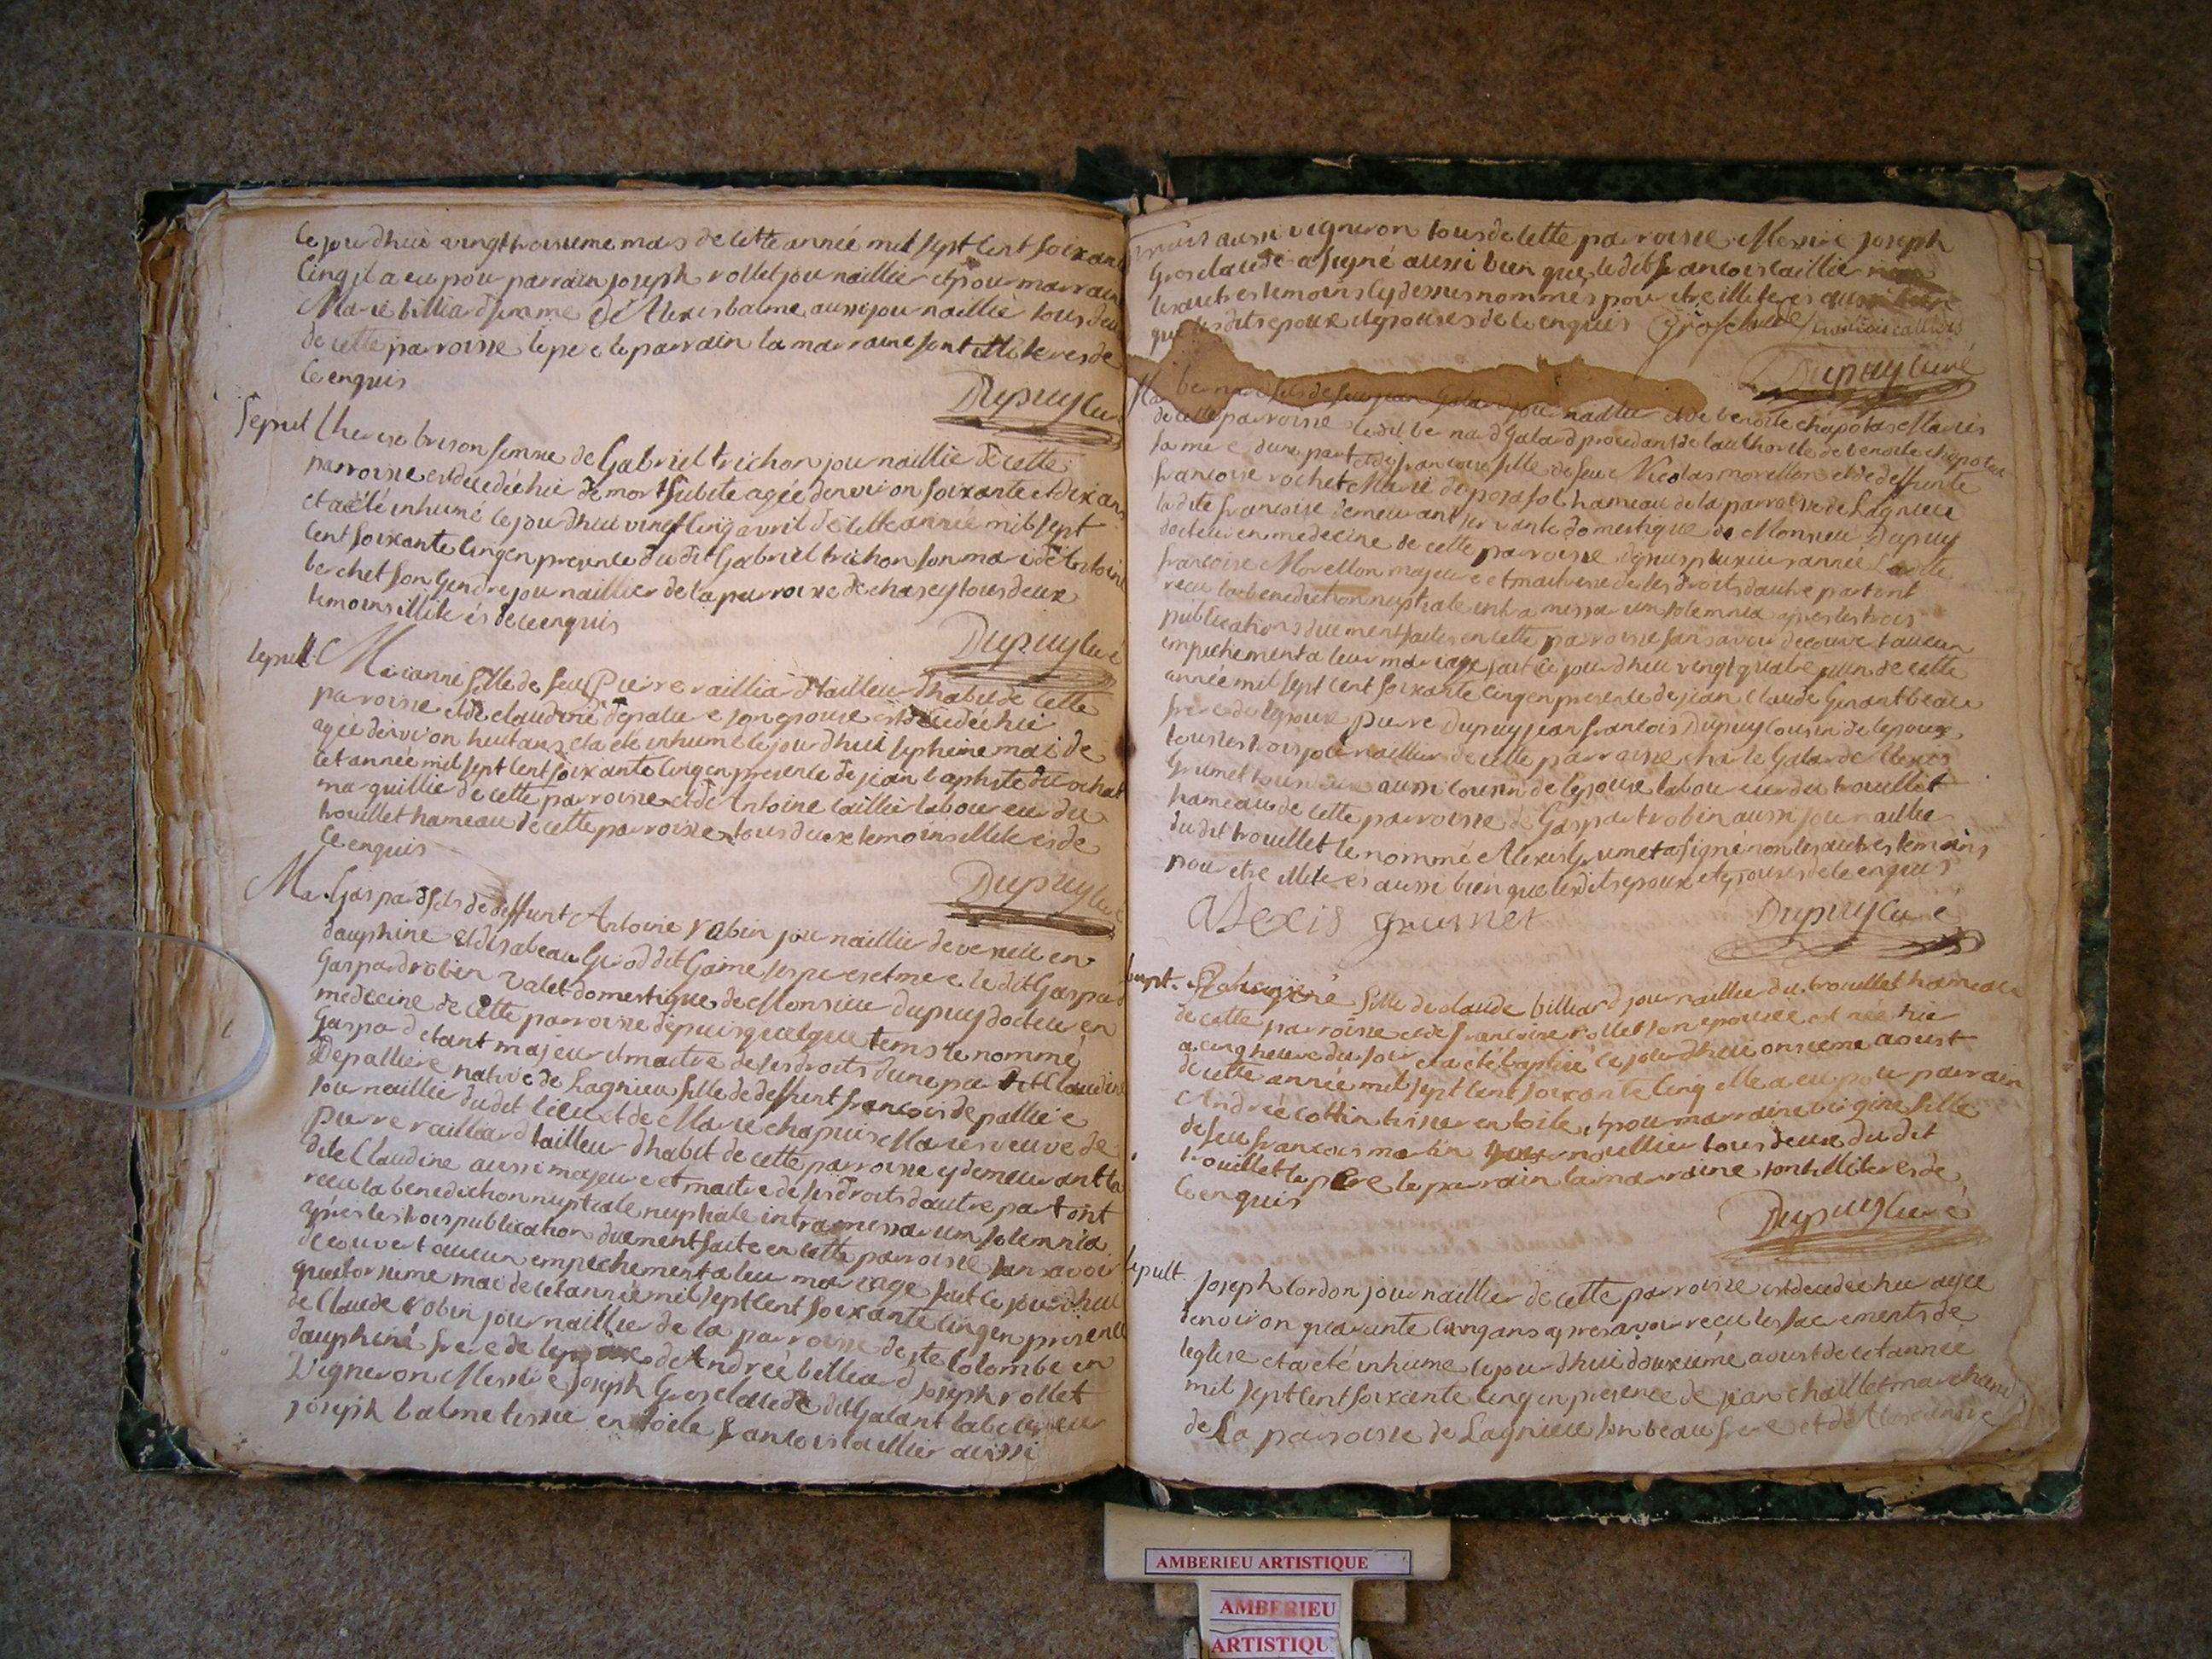 ce jourdhuis vingt troisieme mars de cette année mil sept cent soixante
Cinq il a eu pour parrain joseph rollet journaillier et pour marraine
Marie billiard femme de Alexis balme aussi journaillie tous deux
de cette parroisse le pere le parrain la marraine sont illiteres de
Ce enquis
Dupuy Curé
sepul therese brison femme de Gabriel trichon journaillie de cette
parroisse est decedée hie de mort subite agée denvion soixante et dix ans
et a eté inhumé ce jourdhui vingt Cinq avril de cette année mil sept
Cent soixante Cinq en presence du dit Gabriel trichon son mari de Antoine
berchet son Gendre journaillier de la parroisse de chasey tous deux
temoins illiterés de ce enquis
Dupuy Curé
sepul. Marianne fille de feu Pierre raillia d tailleur dhabit de Cette
parroisse et de claudine depaliere son epouse est decedée hie
agée denvion huit ans et a eté inhumé ce jourdhui septieme mai de
cet année mil sept cent soixante Cinq en presence de jean baptiste durochat
marguillie de cette parroisse et de Antoine caillie laboureur du
trouillet hameau de cette parroisse tous deux temoins illiterés de
Ce enquis
Dupuy Curé
Ma. Gaspard fils de deffunt Antoine robin journaillie de
dauphine et disabeau Girod dit Game ses pere et mere le dit Gaspard
Gaspard robin valet domestique de Monsieur dupuy docteur en
medecine de cette parroisse depuis quelque tems le nommé
Gaspard etant majeur et maitre de ses droits dune part et Claudine
Depalliere native de Lagnieu fille de deffunt francois depalliere
journaillie du dit lieu et de Marie chapuis Mariés veuve de
pierre railliard tailleur dhabit de cette parroisse y demeurant la
dite Claudine aussi majeure et maitre de ses droits dautre part ont
recu la benediction nuptiale nuptiale intra missarum solemnia
après les trois publication duement faite en cette parroisse sans avoir
decouvert aucun empechement a leur mariage fait ce jourdhui
quatorsieme mai de cet année mil sept cent soixante Cinq en presence
de Claude robin journaillie de la parroisse de ste Colombe en
dauphiné frere de lepoux de Andreé billiard joseph rollet
Vigneron Messire joseph Grosclaude dit Galant laboureur
joseph balme tissie en toile francois caillier aussi
aussi vigneron tous de cette parroisse Messire joseph
Grosclaude a signé aussi bien que le dit francois caillier non
les autres temoins cy dessus nommés pour etre illiterés aussi bien
que les dits epoux et epouses de ce enquis Grosclaude francois caillier
Dupuy Curé
Ma bernard fils de feu jean Galard journaillie et de benoite chapotas Mariés
de cette parroisse le dit bernard Galard procedant de lauthorité de benoite chapotat
sa mere dune part et de francoise fille de feu Nicolas morellon et de deffunte
francoise rochet Mariés de posafol hameau de la parroisse de Lagnieu
la dite francoise demeurant servante domestique de Monsieur Dupuy
docteur en medecine de cette parroisse depuis plusieur année la dite
francoise Morellon majeure et maitresse de ses droits dautre part ont
recu la benediction nuptiale intra missarum solemnia après les trois
publications duement faites en cette parroisse sans avoir decouvert aucun
empechement a leur mariage fait ce jourdhui vingt quatre juin de cette
année mil sept cent soixante Cinq en presence de jean Claude Genant beau
frere de lepoux pierre Dupuy jean francois Dupuy cousin de lepoux
tous les trois journaillier de cette parroisse charle Galard Alexis
Grumet tous deux aussi cousin de lepouse laboureur du trouillet
hameau de cette parroisse de Gaspart robin aussi journaillie
du dit trouillet le nommé Alexis Grumet a signé non les autres temoins
pour etre illiterés aussi bien que les dits epoux et epouses de ce enquis
Alexis grumet Dupuy Curé
bapt. fille de claude billiard journaillie du trouillet hameau
de cette parroisse et de francoise rollet son epouse est née hie
a cinq heure du soir et a été baptisé ce jourdhui onsieme aoust
de cette année mil sept cent soixante Cinq elle a eu pour parrain
Andreé cottin tissie en toile et pour marraine virgine fille
de feu francois martin journaillier tous deux du dit
trouillet le pere le parrain la marraine sont illiterés de
Ce enquis
Dupuy Curé
sepult. Joseph cordon journaillier de cette parroisse est decedé hie agée
denvion quarante cinq ans apres avoir recu les sacrements de
leglise et a eté inhume ce jourdhui douzieme aoust de cet année
mil sept cent soixante cinq en presence de jean chaillet marchand
de La parroisse de Lagnieu son beau frere et de Alexandre
AMBERIEU ARTISTIQUE
AMBERIEU
ARTISTIQU